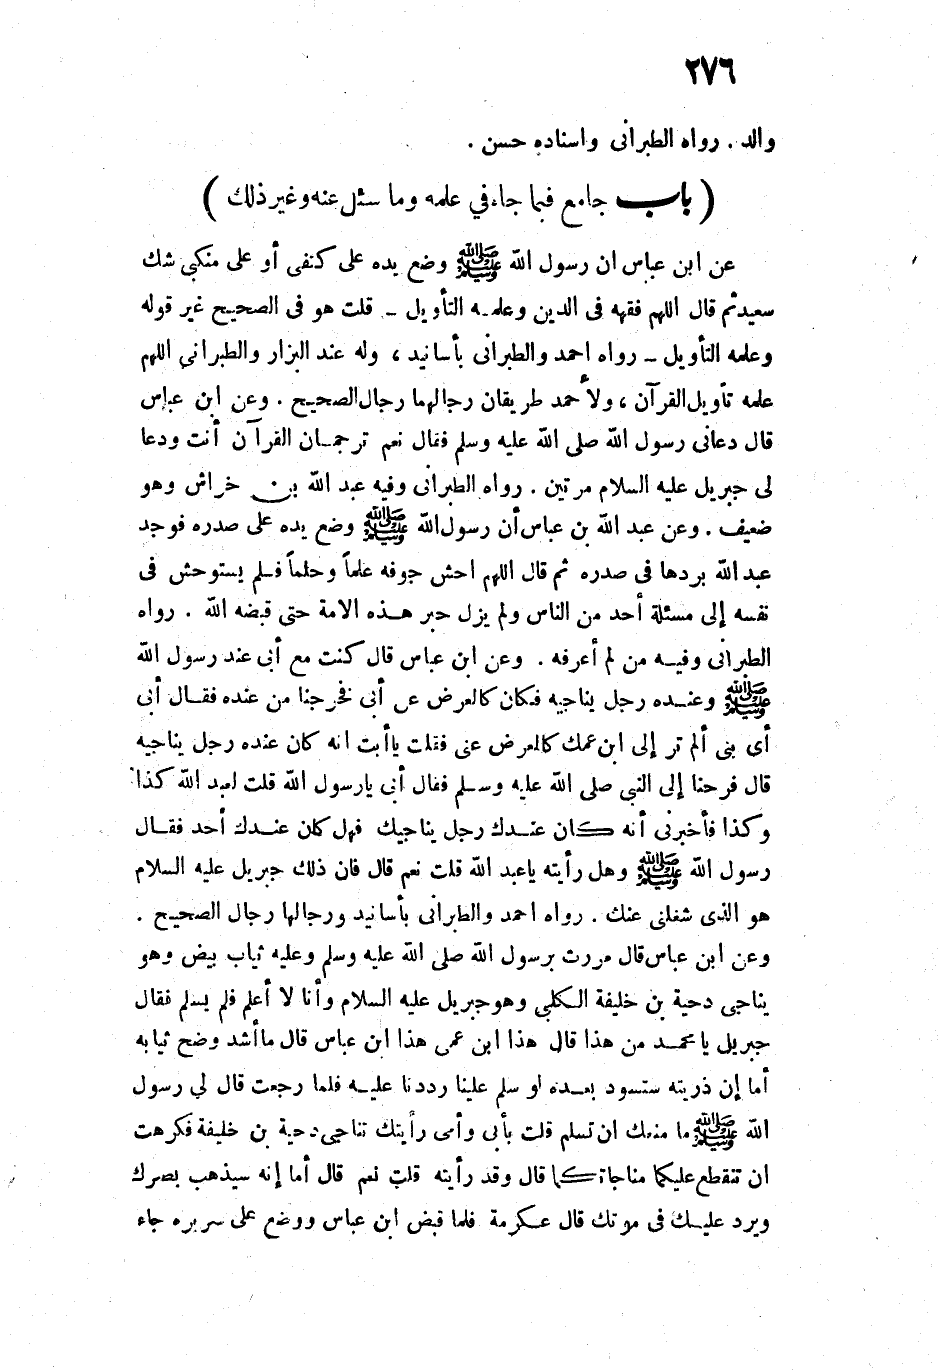 ٢٧٦
والد . رواه الطبرانى واسناده حسن .
( باب جامع فيما جاء في علمه وما سئل عنه وغير ذلك )
عن ابن عباس ان رسول الله ﷺ وضع يده على كتفى أو على منكبي شك
سعيد ثم قال اللهم فقهه فى الدين وعلمه التأويل - قلت هو فى الصحيح غير قوله
وعلمه التأويل - رواه احمد والطبرانى بأسانيد ، وله عند البزار والطبراني اللهم
علمه تأويل القرآن ، ولأحمد طريقان رجالهما رجال الصحيح . وعن ابن عباس
قال دعانى رسول الله صلى الله عليه وسلم فقال نعم ترجمان القرآن أنت ودعا
لى جبريل عليه السلام مرتين . رواه الطبرانى وفيه عبد الله بن خراش وهو
ضعيف . وعن عبد الله بن عباس أن رسول الله ﷺ وضع يده على صدره فوجد
عبد الله بردها فى صدره ثم قال اللهم احش جوفه علماً وحلماً فلم يستوحش فى
نفسه إلى مسئلة أحد من الناس ولم يزل حبر هذه الامة حتى قبضه الله . رواه
الطبرانى وفيه من لم أعرفه . وعن ابن عباس قال كنت مع أبى عند رسول الله
ﷺ وعنده رجل يناجيه فكان كالعرض عن أبى فخرجنا من عنده فقال أبى
أى بنى ألم تر إلى ابن عمك كالعرض عنى فقلت ياأبت انه كان عنده رجل يناجيه
قال فرحنا إلى النبى صلى الله عليه وسلم فقال أبى يارسول الله قلت لعبد الله كذا
وكذا فأخبرنى أنه كان عندك رجل يناجيك فهل كان عندك أحد فقال
رسول الله ﷺ وهل رأيته ياعبد الله قلت نعم قال فان ذلك جبريل عليه السلام
هو الذى شغلنى عنك . رواه احمد والطبرانى بأسانيد ورجالها رجال الصحيح .
وعن ابن عباس قال مررت برسول الله صلى الله عليه وسلم وعليه ثياب بيض وهو
يناجى دحية بن خليفة الكلبى وهو جبريل عليه السلام وأنا لا أعلم فلم يسلم فقال
جبريل يامحمد من هذا قال هذا ابن عمى هذا ابن عباس قال ماأشد وضح ثيابه
أما إن ذريته ستسود بعده لو سلم علينا رددنا عليه فلما رجعت قال لي رسول
الله ﷺ ما منعك ان تسلم قلت بأبى وأمى رأيتك تناجى دحية بن خليفة فكرهت
ان تنقطع عليكما مناجاتكما قال وقد رأيته قلت نعم قال أما إنه سيذهب بصرك
ويرد عليك فى موتك قال عكرمة فلما قبض ابن عباس ووضع على سريره جاء